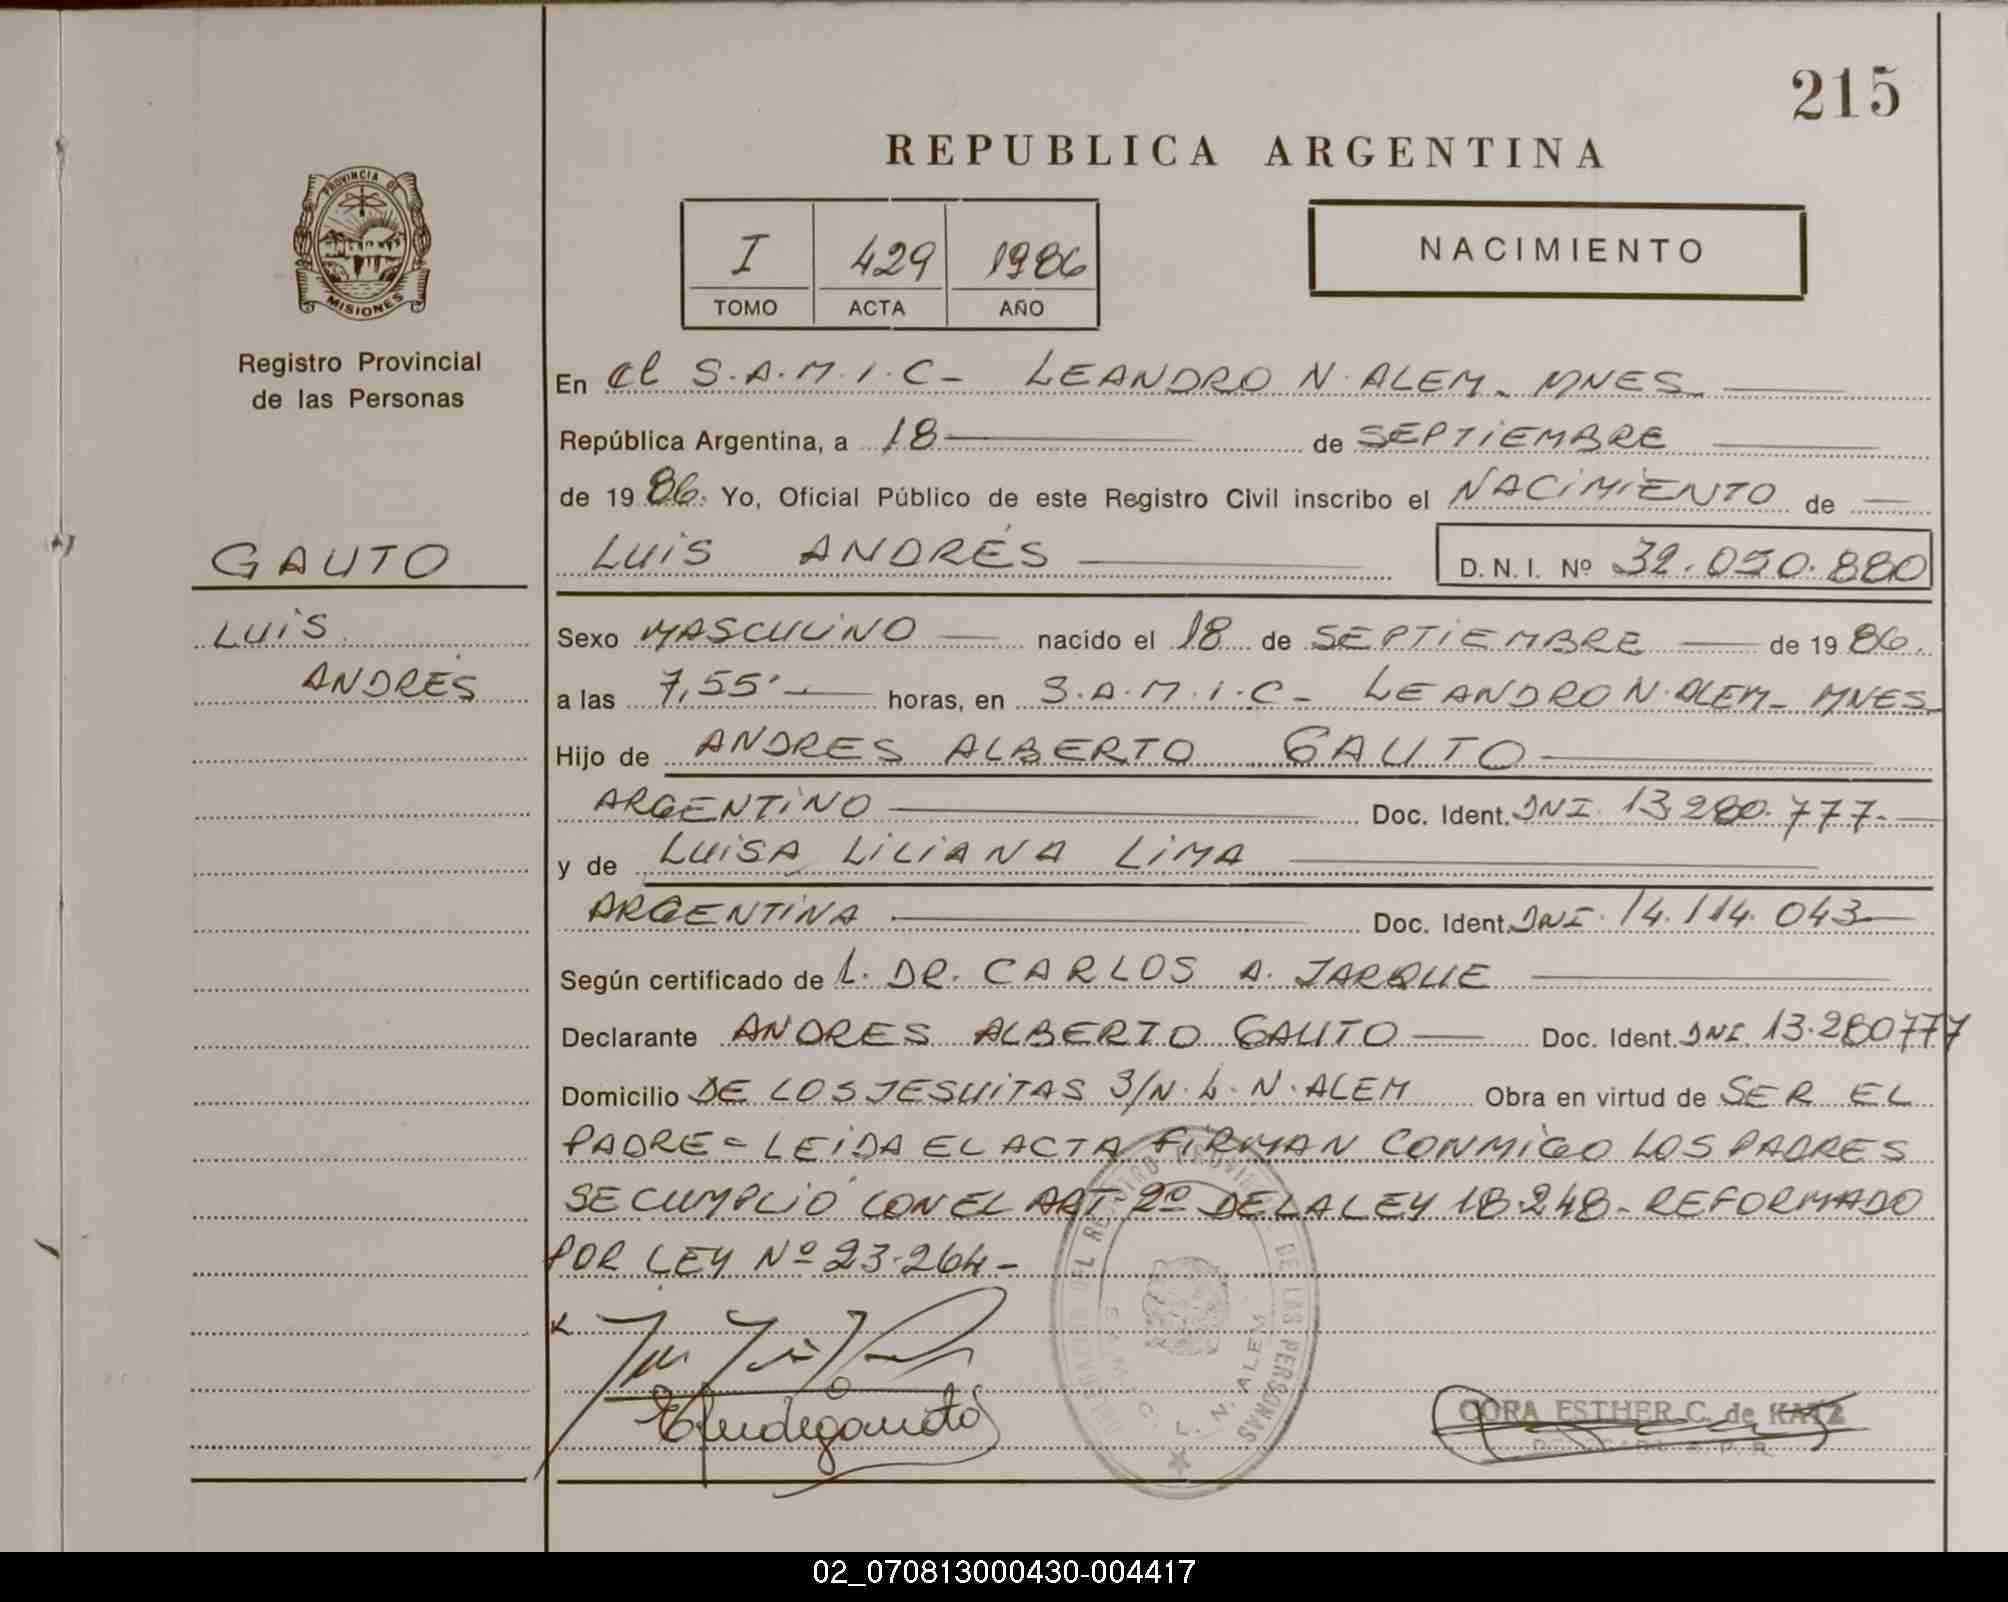 215
REPUBLICA ARGENTINA
PROVINCIA DE
MISIONES
Registro Provincial
de las Personas
GAUTO
LUIS
ANDRÉS
I 429 1986
TOMO ACTA AÑO
NACIMIENTO
En el S.A.M.I.C- LEANDRO N. ALEM- MNES
República Argentina, a 18 de SEPTIEMBRE
de 1986. Yo, Oficial Público de este Registro Civil inscribo el NACIMIENTO de
LUIS ANDRÉS D.N.I. Nº 32.050.880
Sexo MASCULINO nacido el 18 de SEPTIEMBRE de 1986.
a las 7,55' horas, en S.A.M.I.C- LEANDRO N. ALEM- MNES
Hijo de ANDRES ALBERTO GAUTO
ARGENTINO Doc. Ident. DNI. 13.280.777.
y de LUISA LILIANA LIMA
ARGENTINA Doc. Ident. DNI. 14.114.043
Según certificado de L. DR. CARLOS A. JARQUE
Declarante ANDRES ALBERTO GAUTO Doc. Ident. DNI. 13.280777
Domicilio DE LOS JESUITAS S/N. L. N. ALEM Obra en virtud de SER EL
PADRE = LEIDA EL ACTA FIRMAN CONMIGO LOS PADRES
SE CUMPLIÓ CON EL ART. 2º DE LA LEY 18.248- REFORMADO
POR LEY Nº 23.264-
DEL REGISTRO PROVINCIAL DE LAS PERSONAS
L. N. ALEM
CORA ESTHER C. de KATZ
02_070813000430-004417